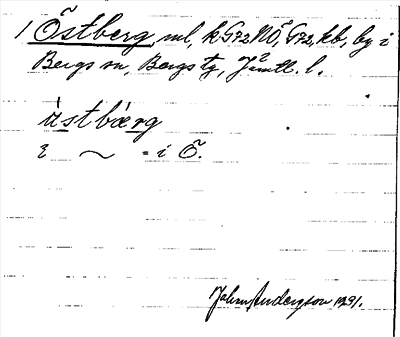 1 Östberg, ml, k G72 NÖ, G72, kb, by i
Bergs sn, Bergs tg, Jämtl. l.
ùstbærg
i ~ = i Ö.
Johan Anderson 1921.